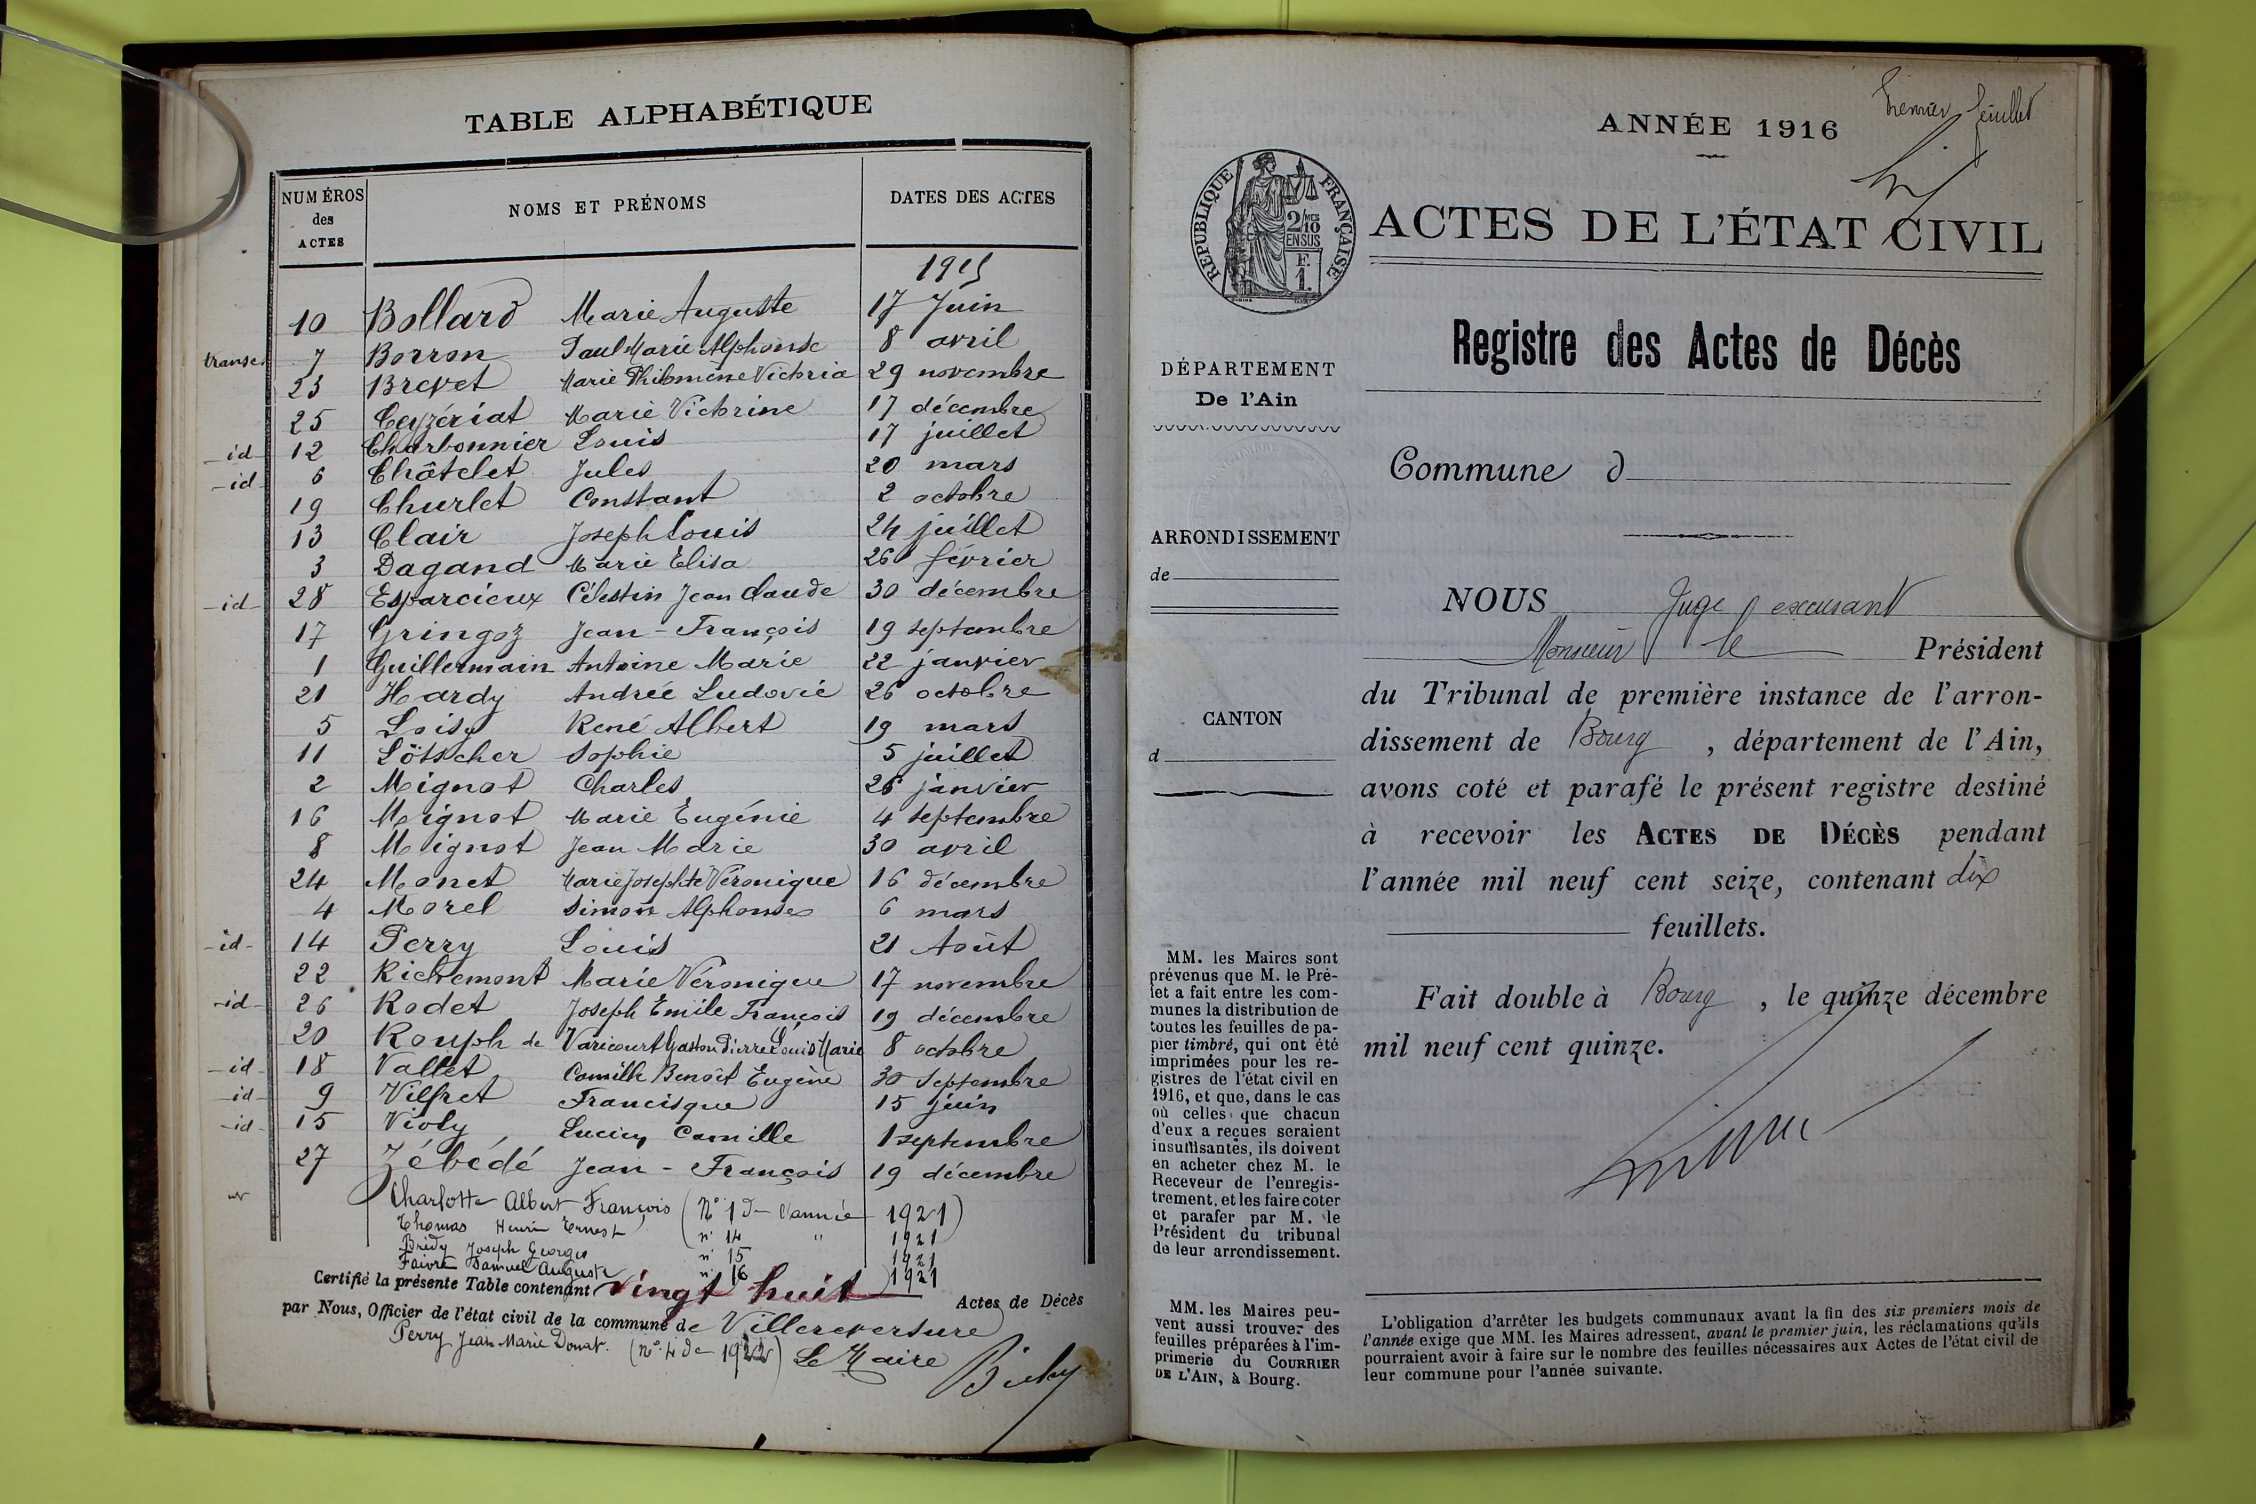 TABLE ALPHABÉTIQUE
NUMÉROS des ACTES NOMS ET PRÉNOMS DATES DES ACTES
1915
10 Bollard Marie Auguste 17 Juin
transc. 7 Borron Paul Marie Alphonse 8 avril
23 Brevet Marie Philomène Victoria 29 novembre
25 Ceyzériat Marie Victorine 17 décembre
-id- 12 Charbonnier Louis 17 juillet
-id- 6 Châtelet Jules 20 mars
19 Churlet Constant 2 octobre
13 Clair Joseph Louis 24 juillet
3 Dagand Marie Élisa 26 février
-id- 28 Esparcieux Célestin Jean Claude 30 décembre
17 Gringoz Jean-François 19 septembre
1 Guillermain Antoine Marie 22 janvier
21 Hardy Andrée Ludovic 26 octobre
5 Loisy René Albert 19 mars
11 Lötscher Sophie 5 juillet
2 Mignot Charles 26 janvier
16 Mignot Marie Eugénie 4 septembre
8 Mignot Jean Marie 30 avril
24 Monet Marie Josephte Véronique 16 décembre
4 Morel Simon Alphonse 6 mars
-id- 14 Perry Louis 21 Août
22 Richemont Marie Véronique 17 novembre
-id- 26 Rodet Joseph Emile François 19 décembre
20 Rouph de Varicourt Gaston Pierre Louis Marie 8 octobre
-id- 18 Vallet Camille Benoît Eugène 30 septembre
-id- 9 Vilfret Francisque 15 juin
-id- 15 Violy Lucien Camille 1 septembre
27 Zébédé Jean-François 19 décembre
Charlotte Albert François (N° 1 de l'année 1921)
Thomas Henri Ernest (n° 14 " 1921
Brédy Joseph Georges n° 15 1921
Faivre Samuel Auguste n° 16 1921
Certifié la présente Table contenant vingt huit Actes de Décès
par Nous, Officier de l'état civil de la commune de Villereversure
Perry Jean Marie Donat. (n° 4 de 1922) Le Maire
Premier feuillet
ANNÉE 1916
RÉPUBLIQUE FRANÇAISE
2/10 MES
EN SUS
F.
1.
ACTES DE L'ÉTAT CIVIL
Registre des Actes de Décès
DÉPARTEMENT
De l'Ain
Commune d
ARRONDISSEMENT
de
CANTON
d
NOUS Juge excusant
Monsieur le Président
du Tribunal de première instance de l'arron-
dissement de Bourg, département de l'Ain,
avons coté et parafé le présent registre destiné
à recevoir les ACTES DE DÉCÈS pendant
l'année mil neuf cent seize, contenant dix
feuillets.
Fait double à Bourg, le quinze décembre
mil neuf cent quinze.
MM. les Maires sont
prévenus que M. le Pré-
fet a fait entre les com-
munes la distribution de
toutes les feuilles de pa-
pier timbré, qui ont été
imprimées pour les re-
gistres de l'état civil en
1916, et que, dans le cas
où celles que chacun
d'eux a reçues seraient
insuffisantes, ils doivent
en acheter chez M. le
Receveur de l'enregis-
trement, et les faire coter
et parafer par M. le
Président du tribunal
de leur arrondissement.
MM. les Maires peu-
vent aussi trouver des
feuilles préparées à l'im-
primerie du COURRIER
DE L'AIN, à Bourg.
L'obligation d'arrêter les budgets communaux avant la fin des six premiers mois de
l'année exige que MM. les Maires adressent, avant le premier juin, les réclamations qu'ils
pourraient avoir à faire sur le nombre des feuilles nécessaires aux Actes de l'état civil de
leur commune pour l'année suivante.